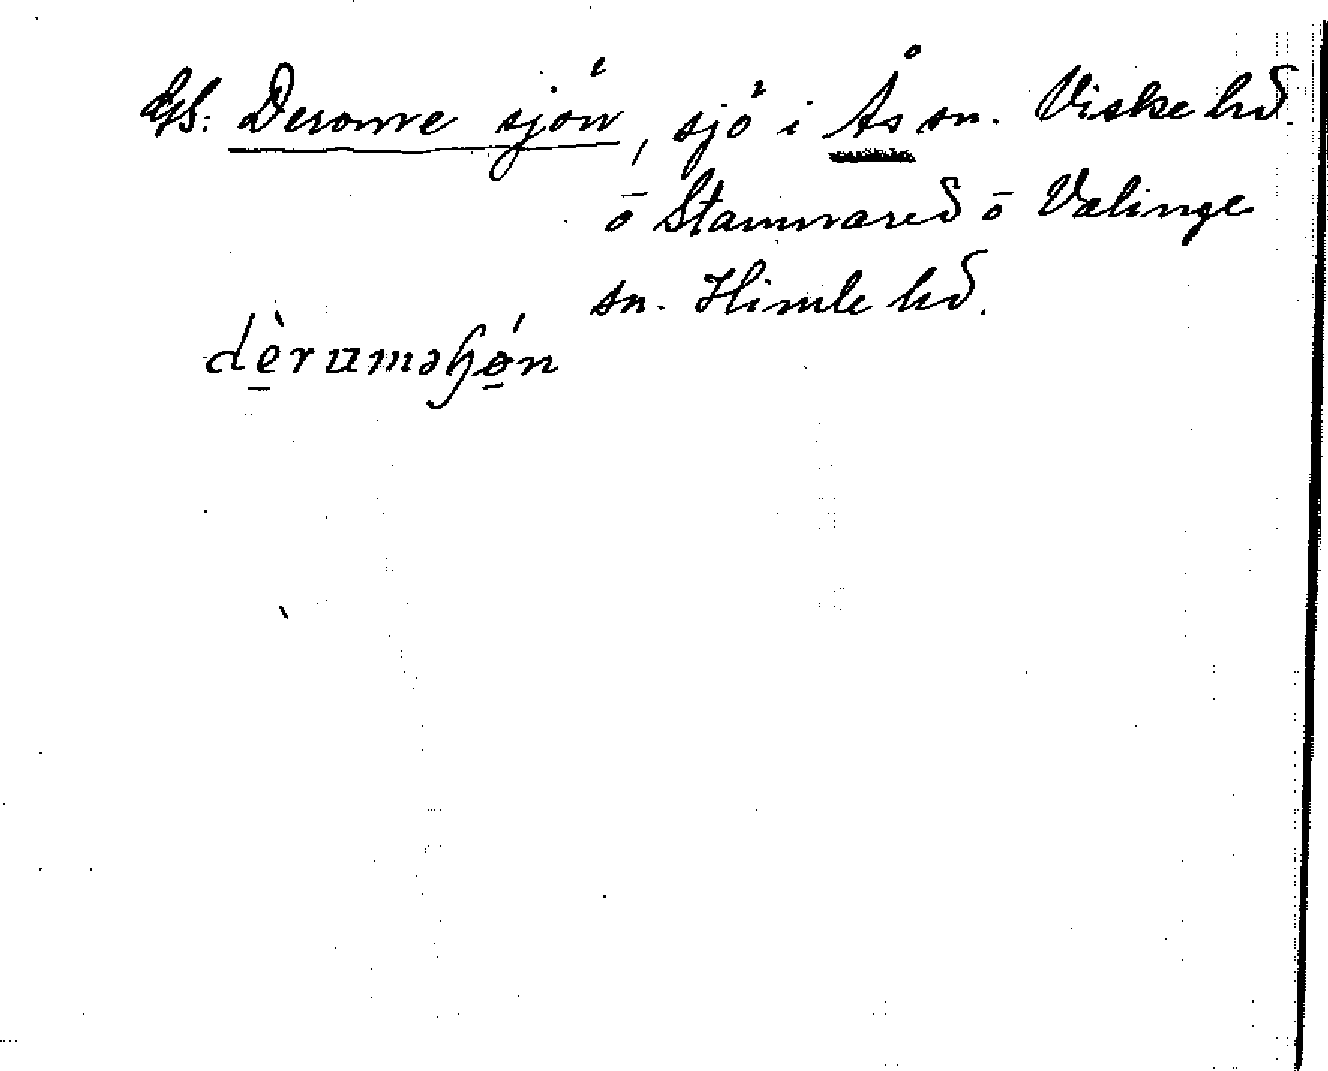 Gs. Derome sjön, sjö i Ås sn. Viske hd.
o Stamnared o Valinge
sn. Himle hd.
dèruməɧǿ̱n